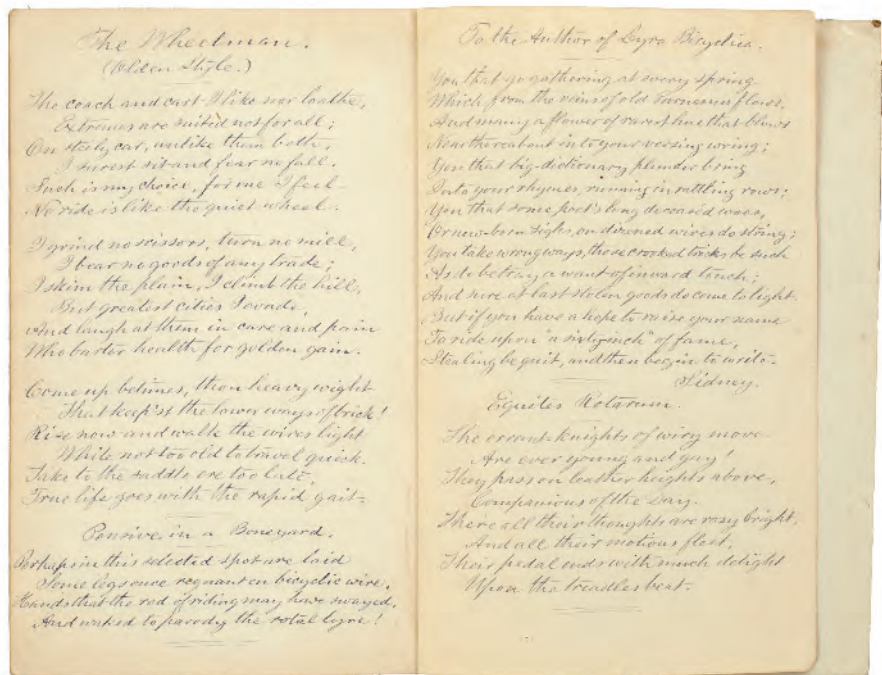 The Wheelman.
(Olden Style.)
The coach and cart I like nor loathe,
Extremes are suited not for all;
On steely car, unlike them both,
I surest sit and fear no fall.
Such is my choice, for me I feel
No ride is like the quiet wheel.
I grind no scissors, turn no mill,
I bear no goods of any trade;
I skim the plain, I climb the hill,
But greatest cities I evade,
And laugh at them in care and pain
Who barter health for golden gain.
Come up betimes, thou heavy wight
That keep'st the lower ways of brick!
Rise now and walk the wires light
While not too old to travel quick.
Take to the saddle ere too late,
True life goes with the rapid gait.
Pensive in a Boneyard.
Perhaps in this selected spot are laid
Some legs once regnant on bicyclic wire,
Hands that the rod of riding may have swayed,
And waked to parody the rotal lyre!
To the Author of Lyra Bicyclica.
You that go gathering at every spring
Which from the veins of old Parnassus flows,
And many a flower of rarest hue that blows
Near thereabout into your versing wring;
You that big dictionary plunder bring
Into your rhymes, running in rattling rows;
You that some poet's long deceased woes,
Or new-born sighs, on direned wires do string;
You take wrong ways, those crooked tricks be such
As do betray a want of inward touch;
And sure at last stolen goods do come to light.
But if you have a hope to raise your name
To ride upon "a sixty inch" of fame,
Stealing be quit, and then begin to write.
Sidney.
Equites Rotarum.
The errant knights of wiry move
Are ever young and gay!
They pass on leather heights above,
Companions of the Day.
There all their thoughts are rosy bright,
And all their motions fleet,
Their pedal ends with much delight
Upon the treadles beat.